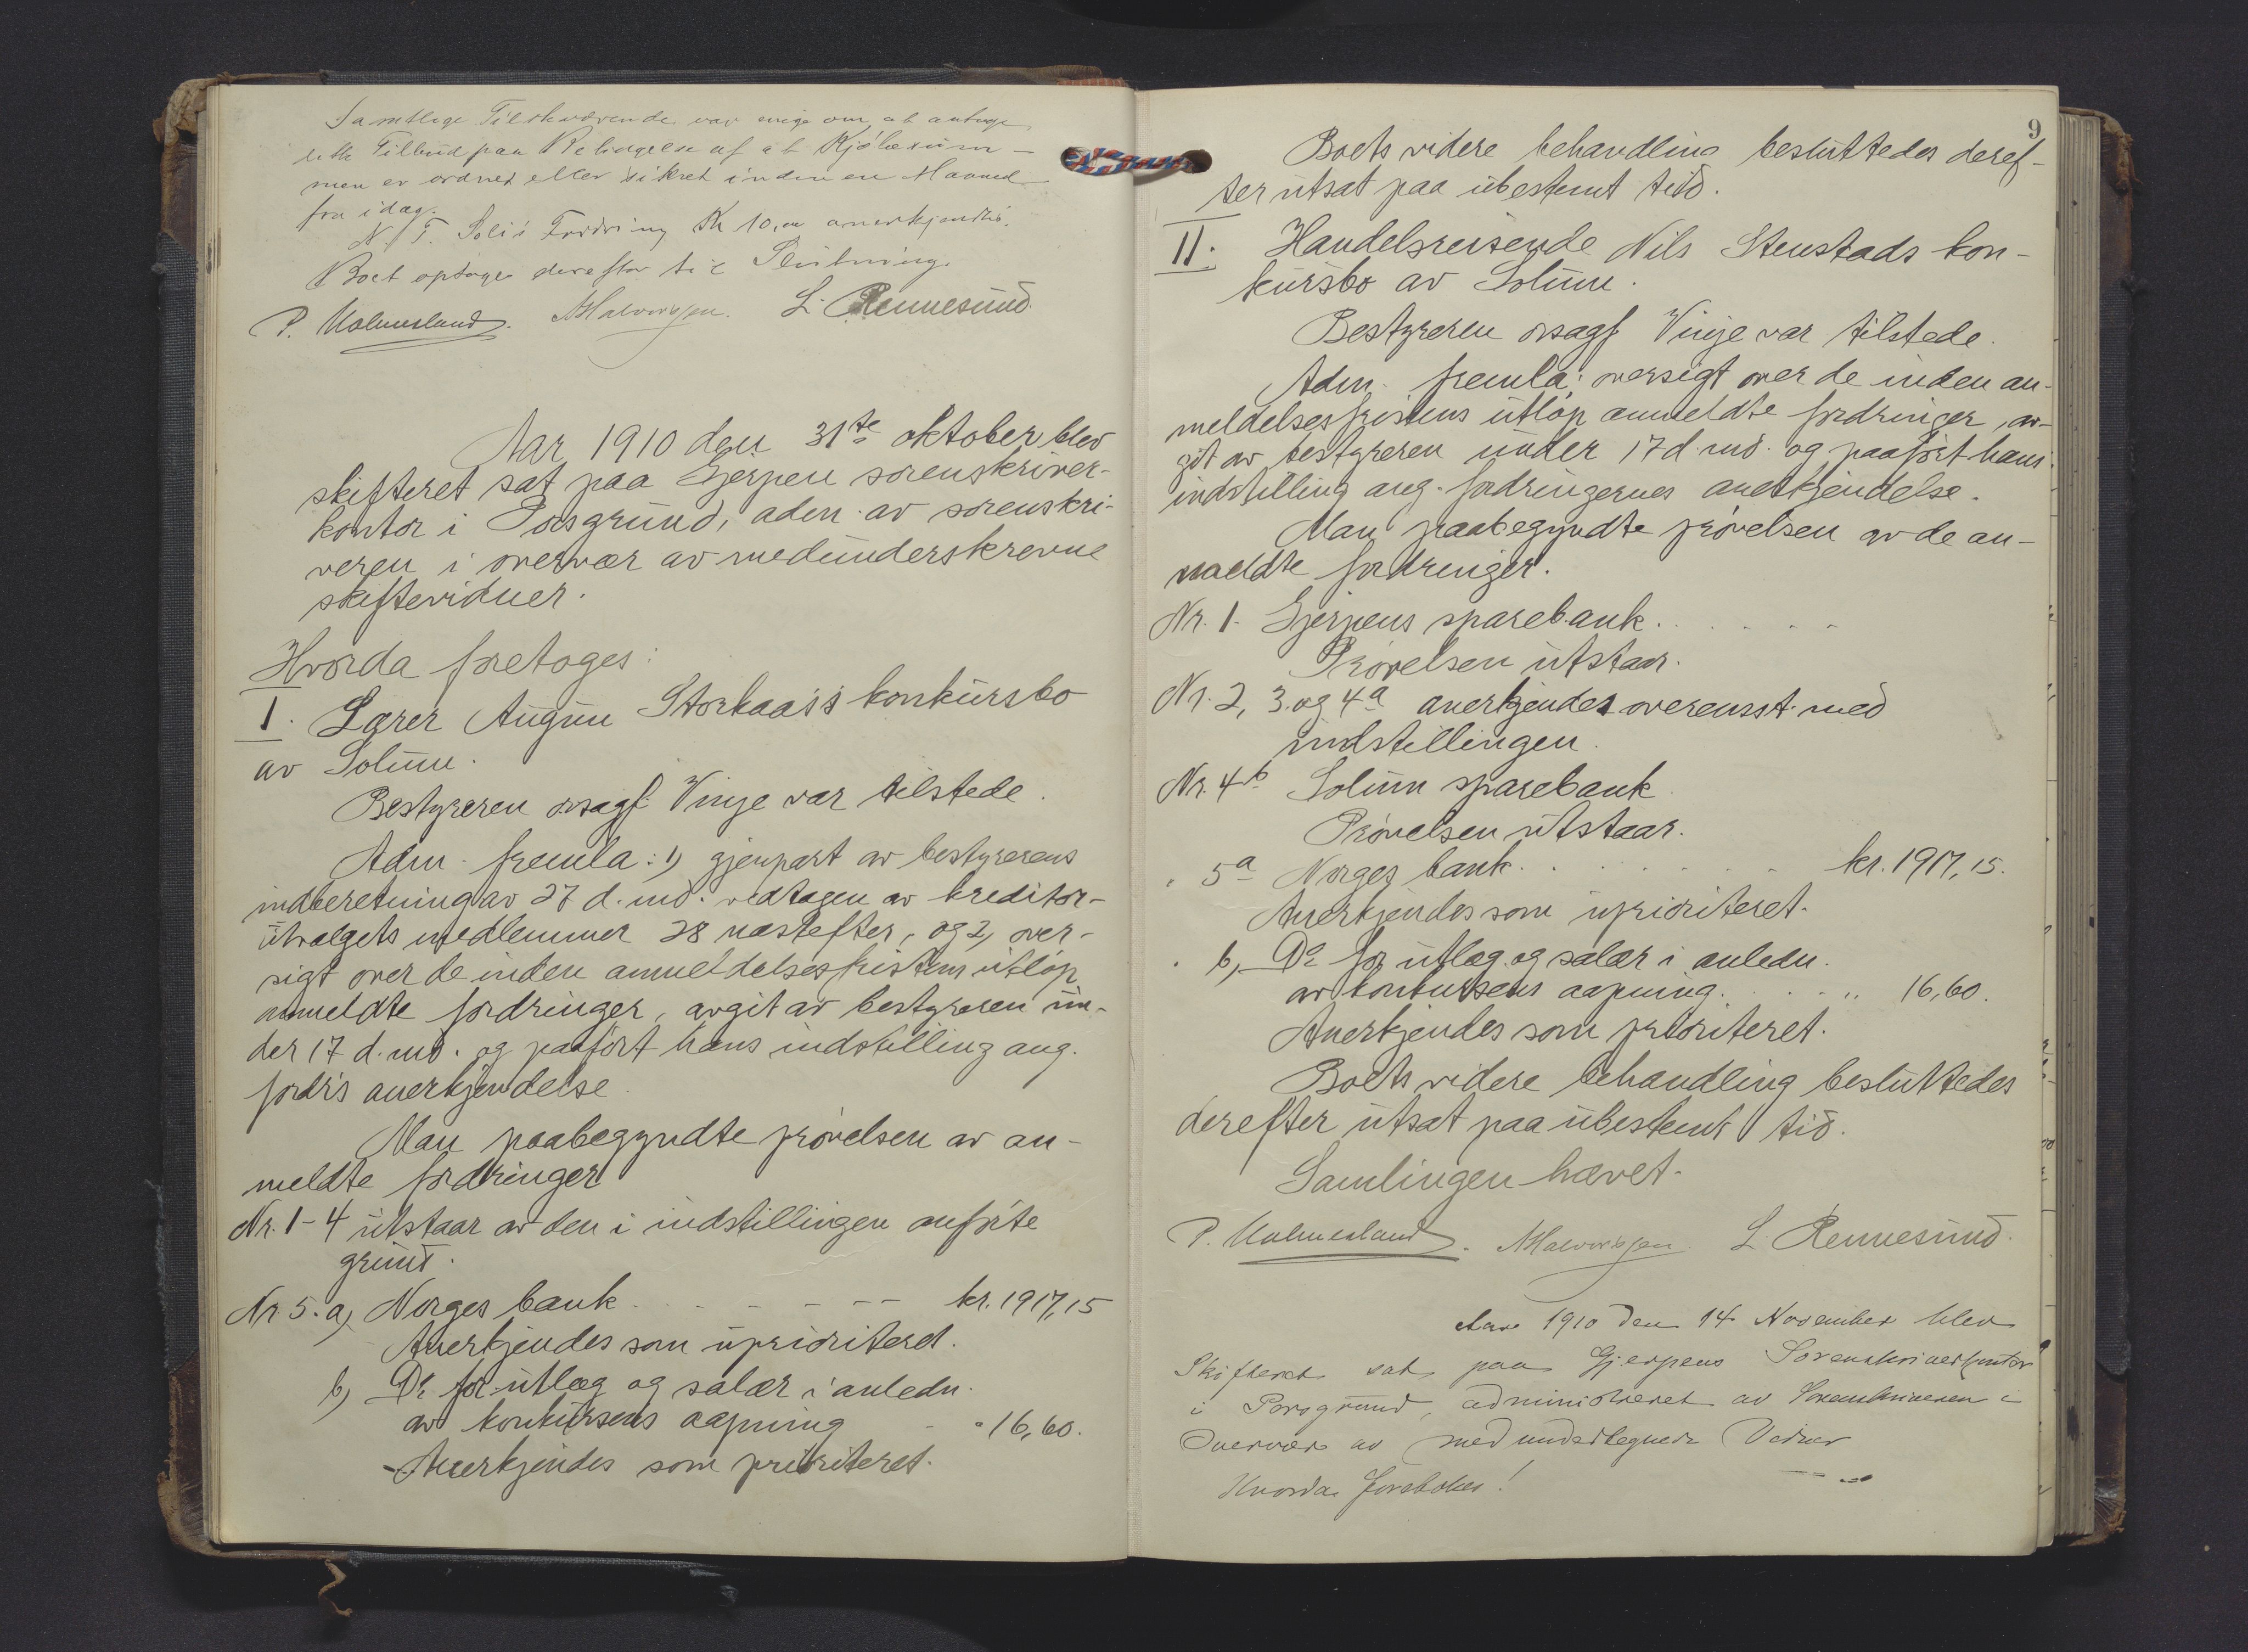 Samtlige Tilstedeværende var enige om at antage
dette Tilbud paa Betingelse af at Kjøbesum-
men er ordnet eller sikret inden en Maaned
fra idag.
N. T. Fordring Kr 10,00 anerkjendtes.
Boet optoges derefter til Slutning.
P. Holmesland. AHalvorsen. L. Rennesund.
Aar 1910 den 31te oktober blev
skifteret sat paa Gjerpen sorenskriver-
kontor i Porsgrund, adm. av sorenskri-
veren i overvær av medunderskrevne
skiftevidner.
Hvorda foretoges:
I. Lærer Augun Storkaas's konkursbo
av Solum.
Bestyreren osagf. Vinje var tilstede.
Adm. fremla: 1) gjenpart av bestyrerens
indberetning av 27 d. md. vedtagen av kreditor-
utvalgets medlemmer 28 næstefter, og 2) over-
sigt over de inden anmeldelsesfristens utløp
anmeldte fordringer, avgit av bestyreren un-
der 17 d. md. og paaført hans indstilling ang.
fordr's anerkjendelse.
Man paabegyndte prøvelsen av an-
meldte fordringer
Nr. 1-4 utstaar av den i indstillingen anførte
grund.
Nr 5. a) Norges bank . - - - - - kr. 1917,15
Anerkjendes som uprioriteret.
b) Do for utlæg og salær i anledn.
av konkursens aapning - " 16,60.
- Anerkjendes som prioriteret.
9
Boets videre behandling besluttedes deref-
ter utsat paa ubestemt tid.
II. Handelsreisende Nils Stenstads kon-
kursbo av Solum.
Bestyreren osagf Vinje var tilstede.
Adm. fremla: oversigt over de inden an-
meldelsesfristens utløp anmeldte fordringer, av-
git av bestyreren under 17 d. md. og paaført hans
indstilling ang. fordringernes anerkjendelse.
Man paabegyndte prøvelsen av de an-
meldte fordringer.
Nr. 1. Gjerpens sparebank. . . . . .
Prøvelsen utstaar.
Nr. 2, 3. og 4a anerkjendes overensst. med
indstillingen.
Nr. 4b Solum sparebank.
Prøvelsen utstaar.
" 5a Norges bank. . . . . . . kr. 1917,15.
Anerkjendes som uprioriteret.
" b) Do for utlæg og salær i anledn.
av konkursens aapning. . . . " 16,60.
Anerkjendes som prioriteret.
Boets videre behandling besluttedes
derefter utsat paa ubestemt tid.
Samlingen hævet.
P. Holmesland. AHalvorsen. L. Rennesund.
Aar 1910 den 14 November blev
Skifteret sat paa Gjerpens Sorenskriverkontor
i Porsgrund, administreret av Sorenskriveren i
Overvær av medundertegnede Vidner
Hvorda foretokes!